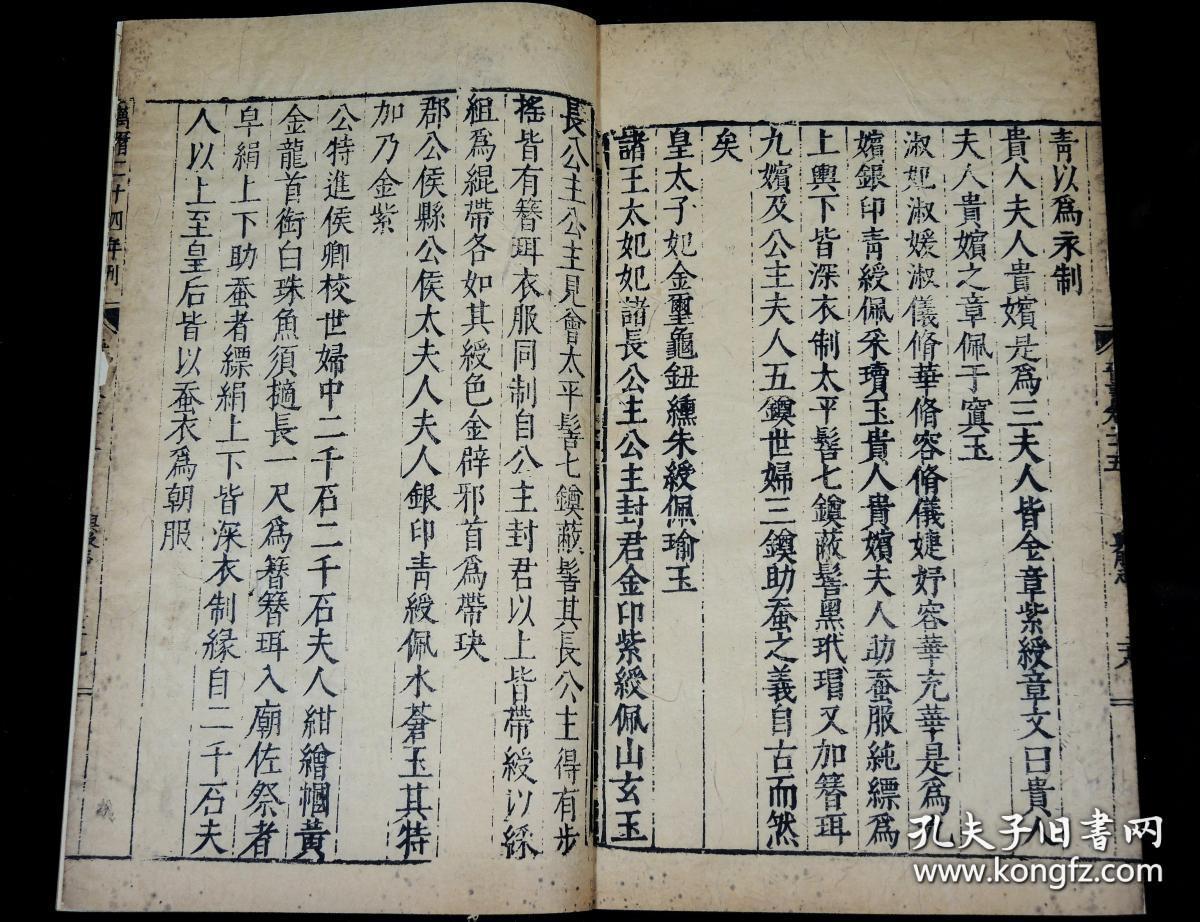 青以爲永制
貴人夫人貴嬪是爲三夫人皆金章紫綬章文曰貴人
夫人貴嬪之章佩于窴玉
淑妃淑媛淑儀脩華脩容脩儀婕妤容華充華是爲九
嬪銀印青綬佩采瓄玉貴人貴嬪夫人助蚕服純縹爲
上輿下皆深衣制太平髻七鏌蔽髻黑玳瑁又加簪珥
九嬪及公主夫人五鏌世婦三鏌助蚕之義自古而然
矣
皇太子妃金璽龜鈕纁朱綬佩瑜玉
諸王太妃妃諸長公主公主封君金印紫綬佩山玄玉
長公主公主見會太平髻七鏌蔽髻其長公主得有步
搖皆有簪珥衣服同制自公主封君以上皆帶綬以綵
組爲緄帶各如其綬色金辟邪首爲帶玦
郡公侯縣公侯太夫人夫人銀印青綬佩水蒼玉其特
加乃金紫
公特進侯卿校世婦中二千石二千石夫人紺繒幗黃
金龍首銜白珠魚須擿長一尺爲簪簪珥入廟佐祭者
皁絹上下助蚕者縹絹上下皆深衣制緣自二千石夫
人以上至皇后皆以蚕衣爲朝服
萬曆二十四年刊
孔夫子旧书网
www.kongfz.com